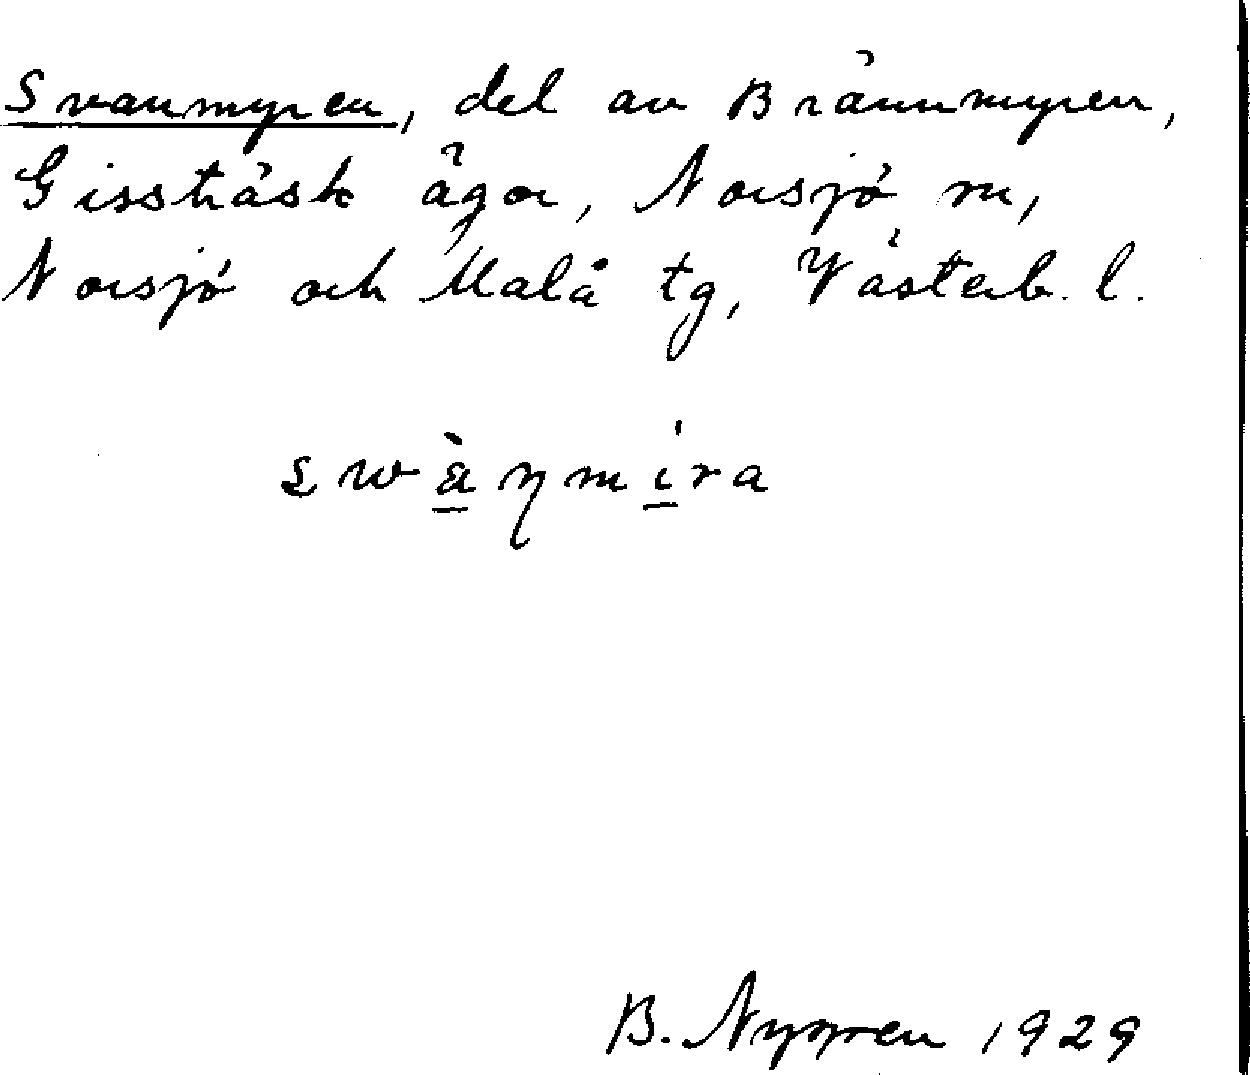 Svanmyren, del av Brännmyren,
Gissträsk ägor, Norsjö sn,
Norsjö och Malå tg, Västerb. l.
swànmi̱ra
B. Nygren 1929